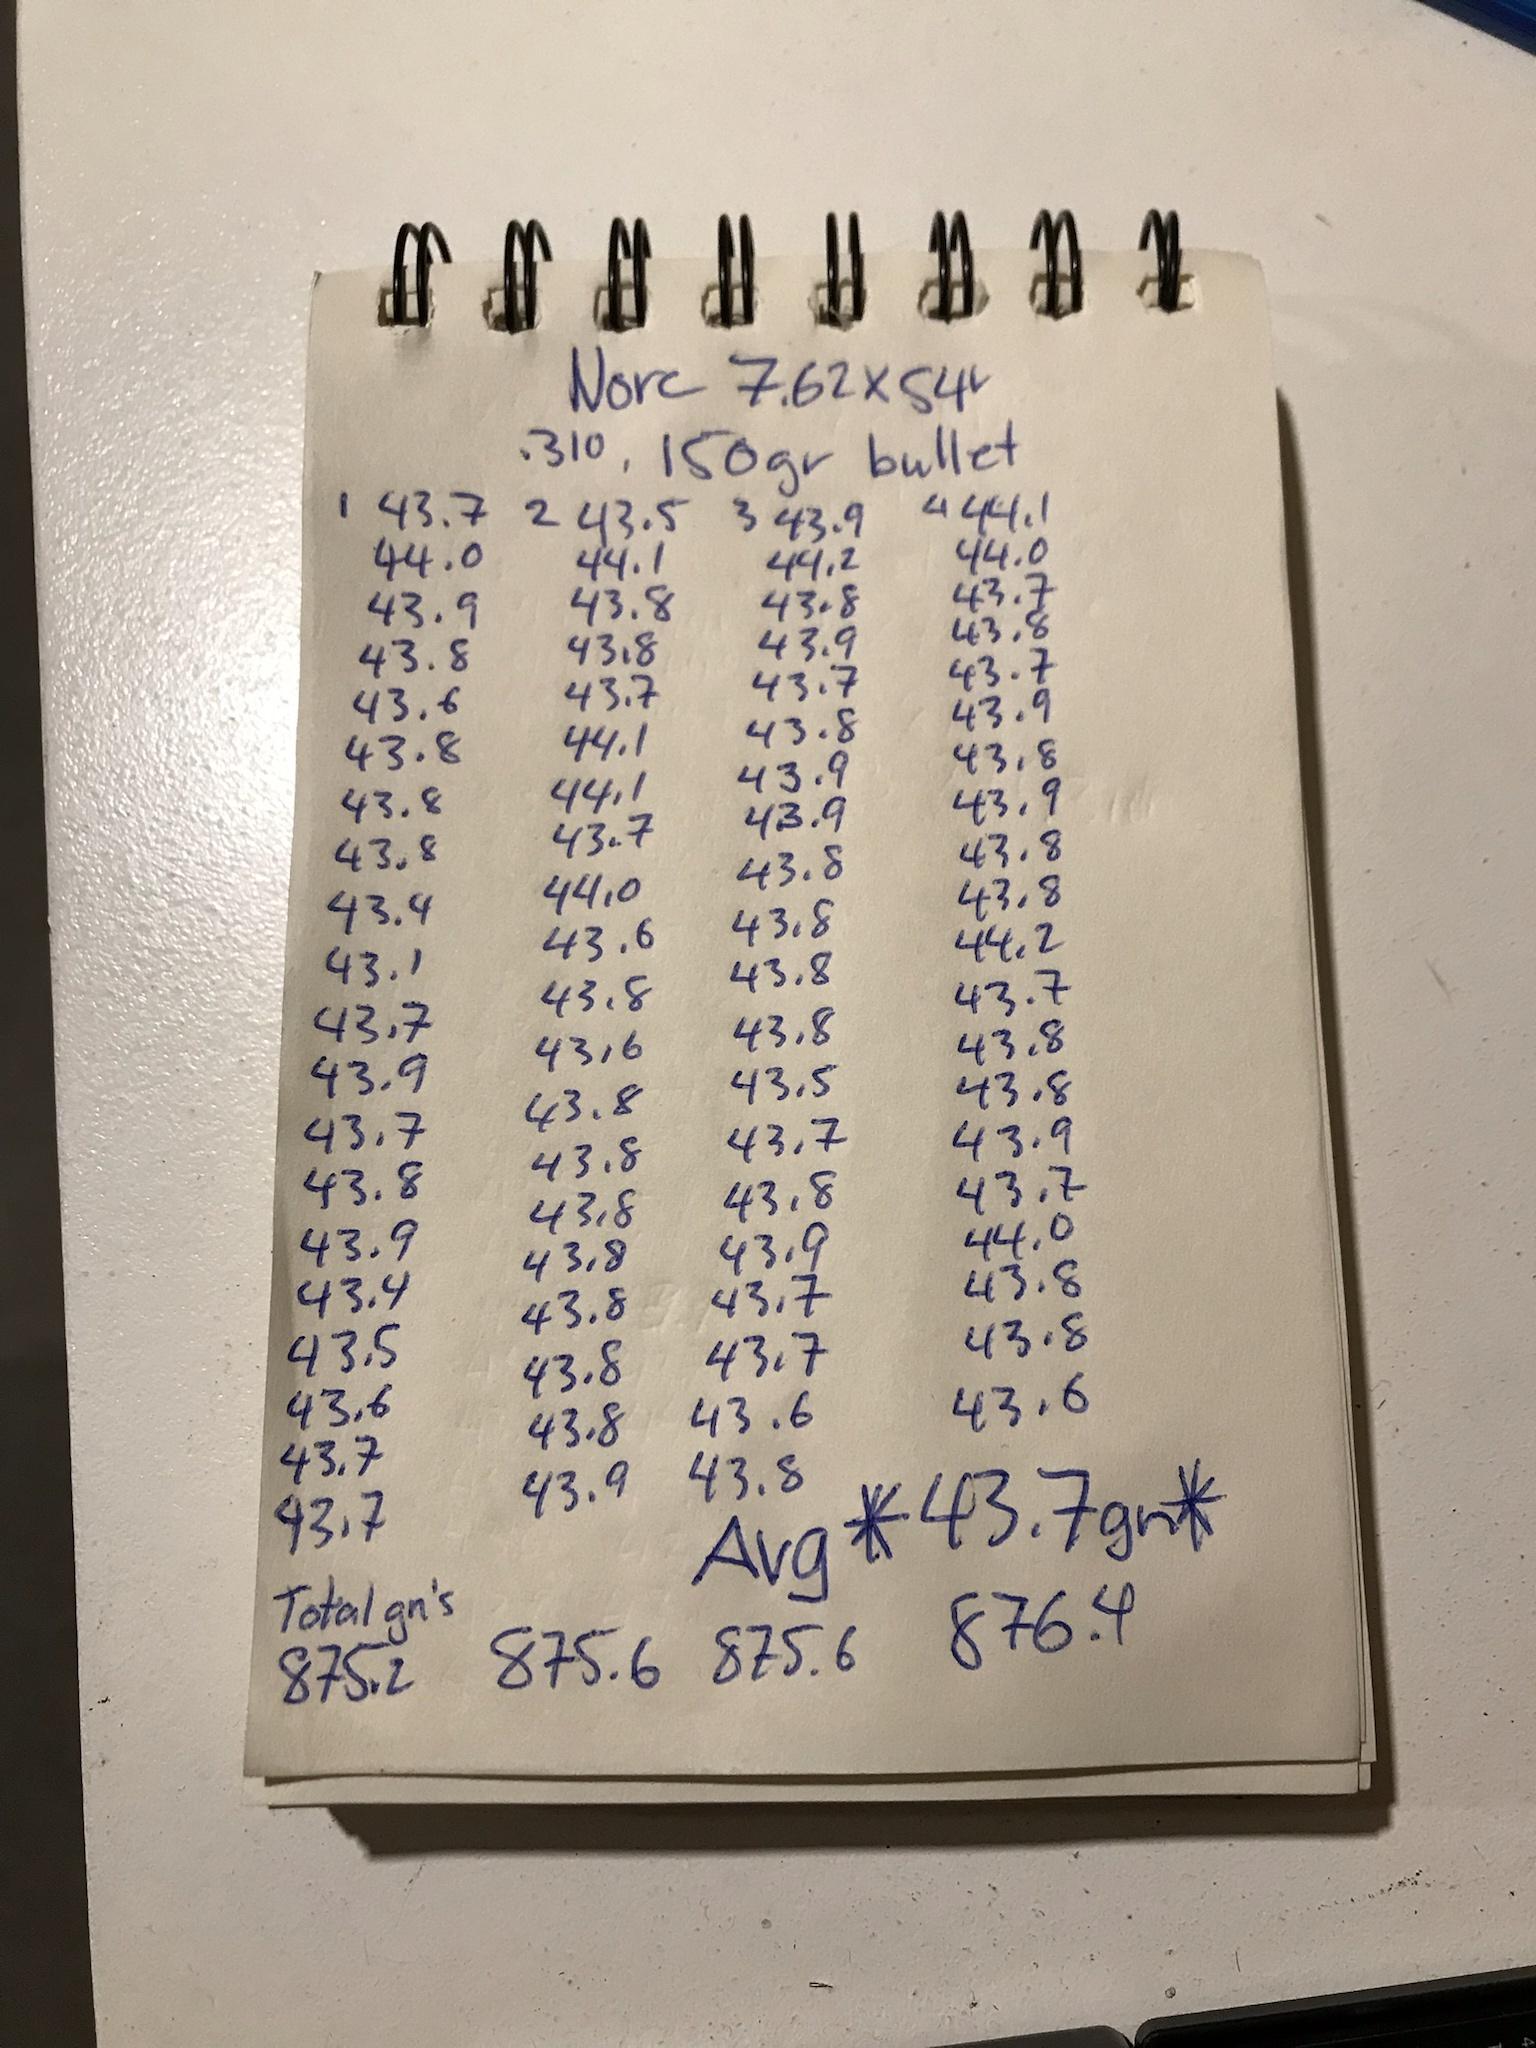 Norc 7.62x54r
.310, 150gr bullet
1 43.7 2 43.5 3 43.9 4 44.1
44.0 44.1 44.2 44.0
43.9 43.8 43.8 43.7
43.8 43.8 43.9 43.8
43.6 43.7 43.7 43.7
43.8 44.1 43.8 43.9
43.8 44.1 43.9 43.8
43.8 43.7 43.9 43.9
43.4 44.0 43.8 43.8
43.1 43.6 43.8 43.8
43.7 43.8 43.8 44.2
43.9 43.6 43.8 43.7
43.7 43.8 43.5 43.8
43.8 43.8 43.7 43.8
43.9 43.8 43.8 43.9
43.4 43.8 43.9 43.7
43.5 43.8 43.7 44.0
43.6 43.8 43.7 43.8
43.7 43.8 43.6 43.8
43.7 43.9 43.8 43.6
Avg *43.7gn*
Total gn's
875.2 875.6 875.6 876.4